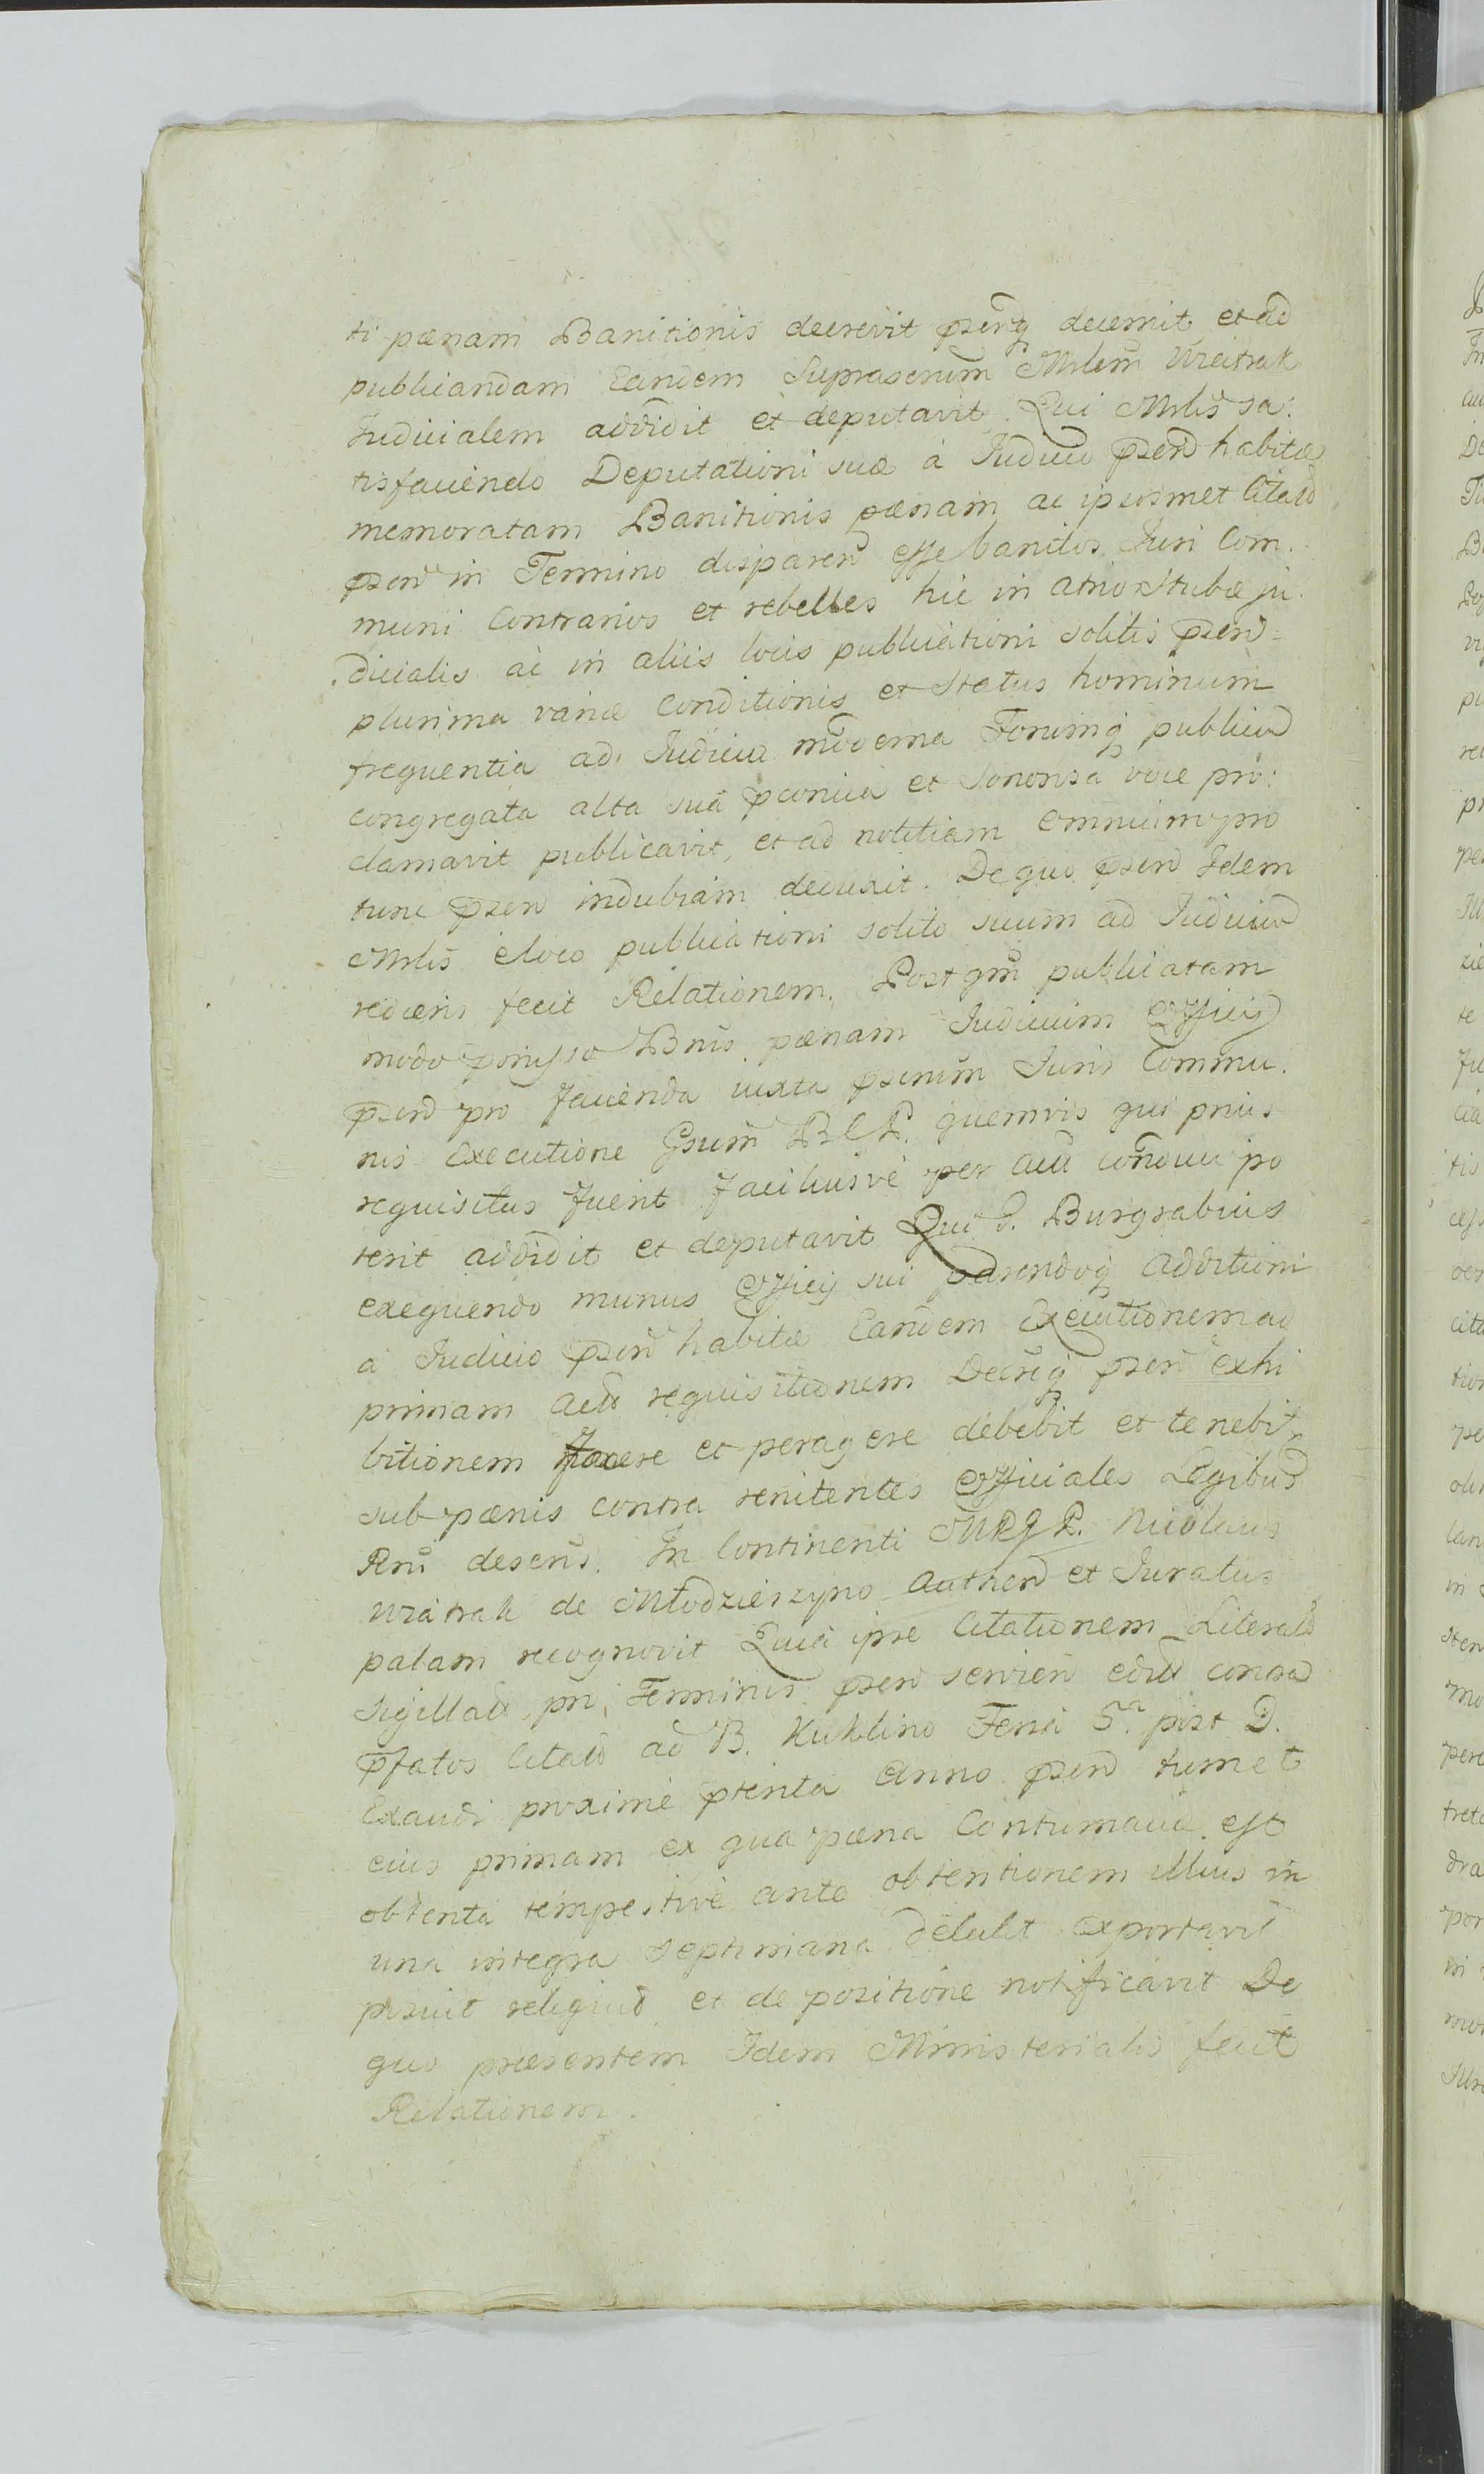 ti pænam Banitionis decrevit pzeñtq̃ decernit et ad
publicandam Eandem Suprascrium̃ Mrlem̃ Wzátrak
Judicialem addidit et deputavit. Qui Mrlis̃ sa:
tisfaciendo Deputationi suæ à Judicio pzend̃ habitæ
memoratam Banitionis pænam ac ipsosmet Citatõ
pzend̃ in Termino disparend̃ esse banitos Juri Com.
muni Contrarios et rebelles hic in atrio Stubæ ju.
dicialis ac in aliis locis publicationi solitis pzend̃=
plurima variæ Conditionis et Status hominum
frequentia ad Judicia mod̃erna Forumq̃ publicũ
congregata alta suá pconicá et Sonorosa voce pro:
clamavit publicavit, et ad notitiam omnium pro
tunc pzend̃ indubiam deduxit. De quo pzend̃ Idem
Mrlis̃ è loco publicationi solito suum ad Judiciũ
rediens fecit Relationem. Post qm̃ publicatam
modo pomisso Bnis̃ pænam Judicium Officij
pzend̃ pro facienda iuxta pzcrium̃ Juris Commu.
nis Executione Gsum̃ B C P. quemvis qui prius
requisitus fuerit faciliusve per act̃ cond̃uci po
terit addidit et deputavit Qui G. Burgrabius
exequendo munus Officij sui parendoq̃ additioni
à Judicio pzend̃ habitæ Eandem Executionem ad
primam act̃ requisitionem Decriq̃ pzen̄ exhi
bitionem facere et peragere debebit et tenebit̃
sub pænis contra renitentes Officiales Legibus
Rni̅ descris̃. In Continenti MRGP. Nicolaus
Wzátrak de Młodzieszyno Authen̄ et Juratus
palam recognovit Quia ipse Citationem Literatõ
Sigillatõ pñi, Termini pzend̃ servien̄ edit̃ contra
p̃fatos Citatõ ad B. Kuklino Feriá 5.ta post D.
Exaudi proxime pterita Anno pzend̃ tum et
eius primam ex qua pæna Contumaciæ est
obtenta tempestive ante obtentionem illius in
una integra septimana detulit exportavit
posuit reliquit et de positione notificavit De
quo præsentem Idem Ministerialis fecit
Relationem.